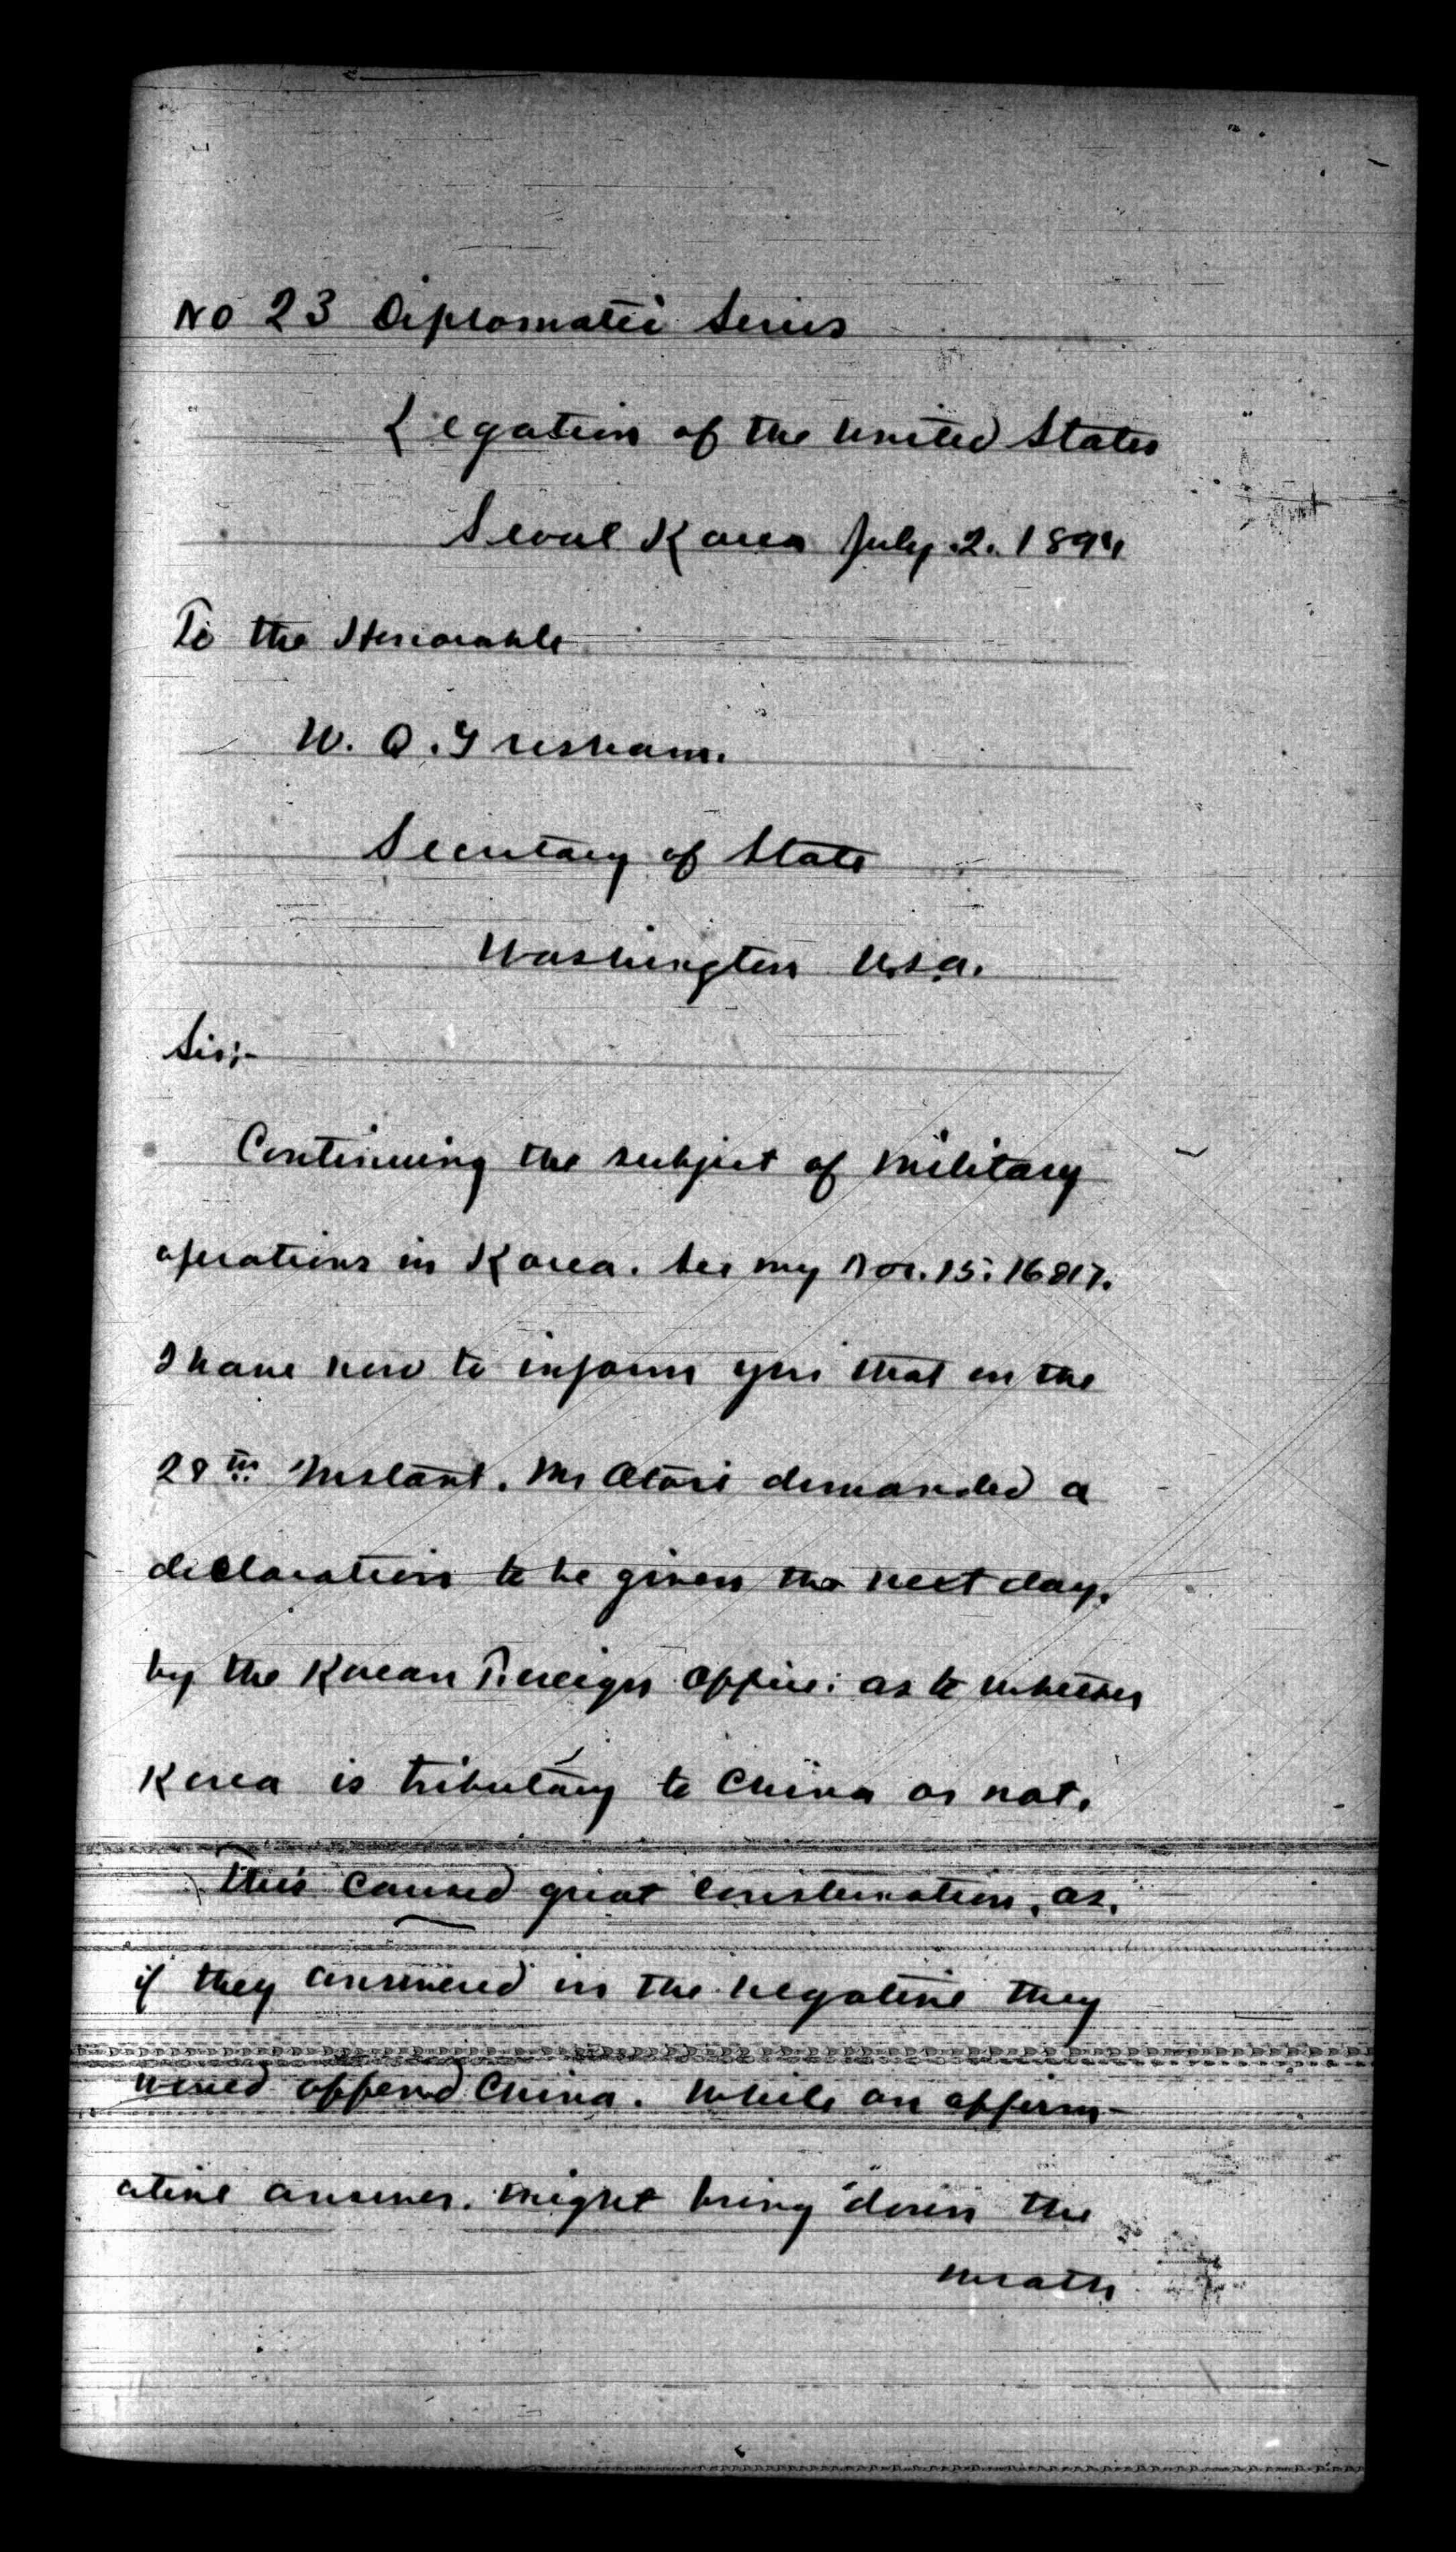 No 23 Diplomatic Series
Legation of the United States
Seoul Korea July. 2. 1894
To the Honorable
W. Q. Gresham.
Secretary of State
Washington U.S.A.
Sir;-
Continuing the subject of military
operations in Korea. See my Nos. 15.
I have now to inform you that on the
28th Instant. Mr Otori demanded a
declaration to be given the next day,
by the Korean Foreign Office: as to whether
Korea is tributary to China or not.
This caused great consternation, as,
if they answered in the negative they
would offend China. While an affirm-
ative answer. might bring down the
wrath